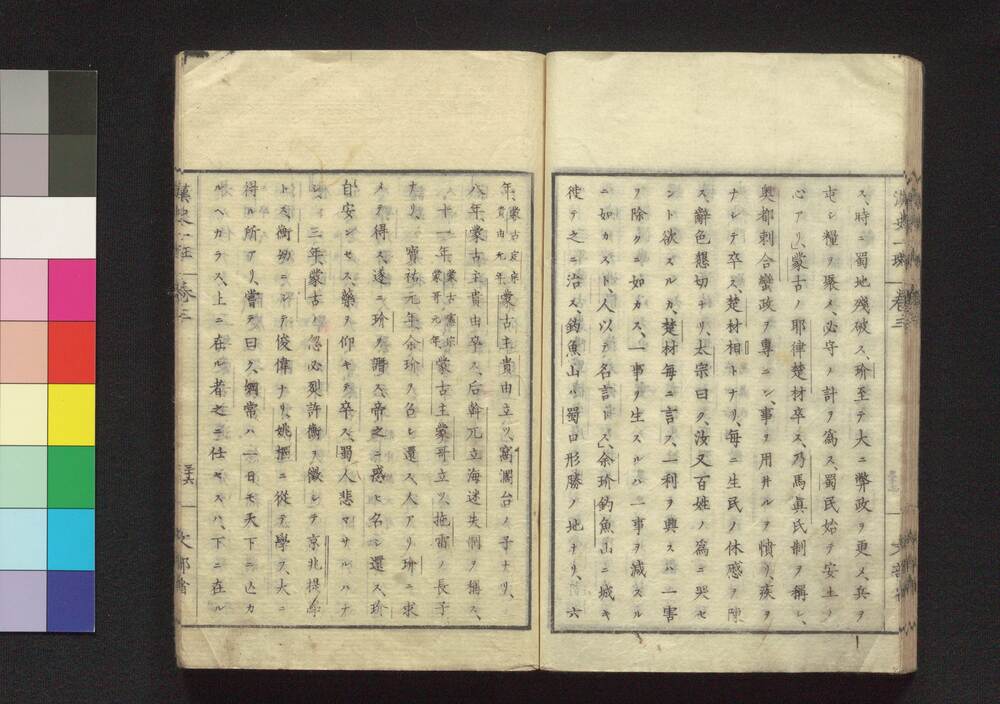 ス、時ニ蜀地殘破ス、玠至テ大ニ弊政ヲ更メ、兵ヲ
屯シ糧ヲ聚メ、必守ノ計ヲ爲ス、蜀民始テ安土ノ
心アリ、蒙古ノ耶律楚材卒ス、乃馬眞氏制ヲ稱シ、
奧都刺合蠻政ヲ專ニシ、事ヲ用井ルヲ憤リ、疾ヲ
ナシテ卒ス、楚材相トナリ、每ニ生民ノ休慼ヲ陳
ス、辭色懇切ナリ、太宗曰ク、汝又百姓ノ爲ニ哭セ
ント欲スルカ、楚材每ニ言ス、一利ヲ興スハ一害
ヲ除クニ如カス、一事ヲ生スルハ一事ヲ減スル
ニ如カスト、人以テ名言トス、余玠釣魚山ニ城キ
徙テ之ニ治ス、釣魚山ハ蜀口形勝ノ地ナリ、六
年、蒙古定宗貴由元年蒙古主貴由立ツ、窩濶台ノ子ナリ、
八年、蒙古主貴由卒ス、后斡兀立海迷失制ヲ稱ス、
十一年、蒙古憲宗蒙哥元年蒙古主蒙哥立ツ、拖雷ノ長子
ナリ、寶祐元年、余玠ヲ召シ還ス、人アリ玠ニ求
メテ得ス、遂ニ玠ヲ譖ス、帝之ニ惑ヒ名シ還ス、玠
自安ンセス、藥ヲ仰キテ卒ス、蜀人悲マサルハナ
シ、三年、蒙古ノ忽必烈許衡ヲ徵シテ京兆提學
トス、衡幼ニシテ俊偉ナリ、姚樞ニ從テ學ヲ、大ニ
得ル所アリ、嘗テ曰ク、綱常ハ一日モ天下ニ亡カ
ルヘカラス、上ニ在ル者之ニ任セスハ、下ニ在ル
卷三